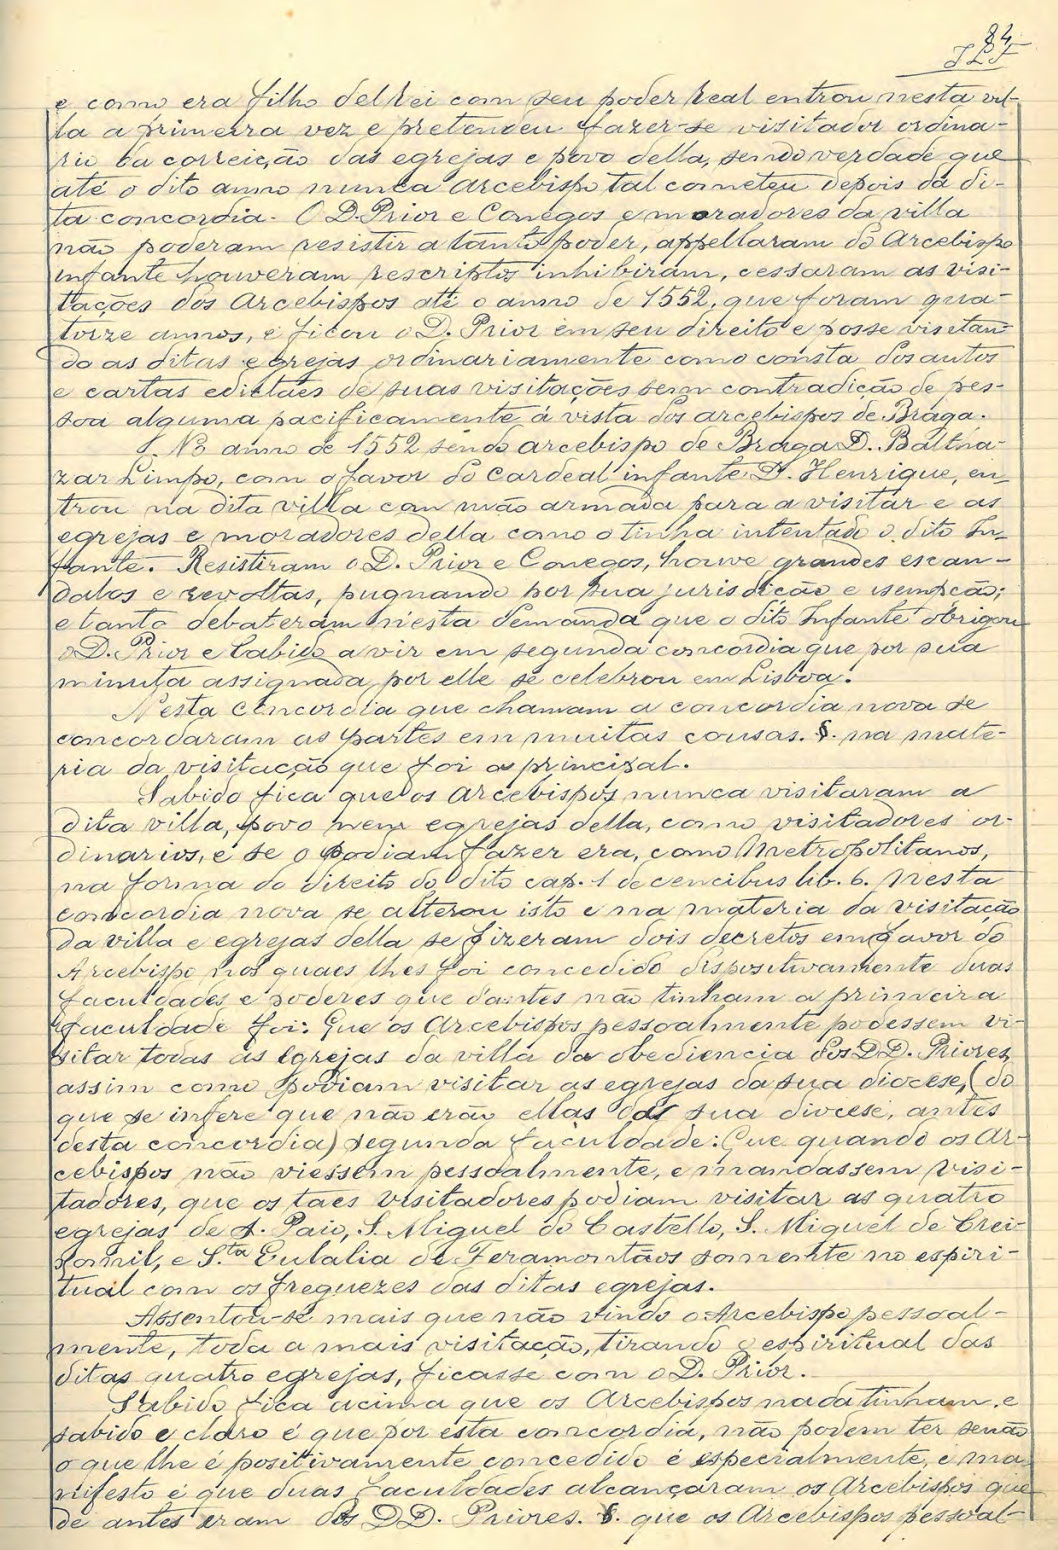 84
e como era filho delRei com seu poder real entrou nesta vil-
la a primeira vez e pretendeu fazer-se visitador ordina-
rio da correição das egrejas e povo della, sendo verdade que
até o dito anno nunca Arcebispo tal cometeu depois da di-
ta concordia. O D. Prior e Conegos e moradores da villa
não poderam resistir a tanto poder, appellaram do Arcebispo
infante houveram rescriptos inhibiram, cessaram as visi-
tações dos Arcebispos até o anno de 1552, que foram qua-
torze annos, e ficou o D. Prior em seu direito e posse visitan-
do as ditas egrejas ordinariamente como consta dos autos
e cartas edictaes de suas visitações sem contradição de pes-
soa alguma pacificamente á vista dos arcebispos de Braga.
§. No anno de 1552 sendo arcebispo de Braga D. Baltha-
zar Limpo, com o favor do Cardeal infante D. Henrique, en-
trou na dita villa com mão armada para a visitar e as
egrejas e moradores della como o tinha intentado o dito In-
fante. Resistiram o D. Prior e Conegos, houve grandes escan-
dalos e revoltas, pugnando por sua jurisdicção e isempção;
e tanto debateram n'esta demanda que o dito Infante obrigou
o D. Prior e Cabido a vir em segunda concordia que por sua
minuta assignada por elle se celebrou em Lisboa.
Nesta concordia que chamam a concordia nova se
concordaram as partes em muitas cousas. §. na mate-
ria da visitação que foi a principal.
Sabido fica que os Arcebispos nunca visitaram a
dita villa, povo nem egrejas della, como visitadores or-
dinarios, e se o podiam fazer era, como Metropolitanos,
na forma do direito do dito cap. 1 de cencibus lib. 6. Nesta
concordia nova se alterou isto e na materia da visitação
da villa e egrejas della se fizeram dois decretos em favor do
Arcebispo nos quaes lhes foi concedido dispositivamente duas
faculdades e poderes que d'antes não tinham a primeira
faculdade foi: Que os Arcebispos pessoalmente podessem vi-
sitar todas as Egrejas da villa da obediencia dos DD. Priores,
assim como podiam visitar as egrejas da sua diocese, (do
que se infere que não erão ellas da sua diocese, antes
desta concordia) segunda faculdade: Que quando os Ar-
cebispos não viessem pessoalmente, e mandassem visi-
tadores, que os taes visitadores podiam visitar as quatro
egrejas de S. Paio, S. Miguel do Castello, S. Miguel de Crei-
xomil, e S.ta Eulalia de Feramontãos somente no espiri-
tual com os freguezes das ditas egrejas.
Assentou-se mais que não vindo o Arcebispo pessoal-
mente, toda a mais visitação, tirando o espiritual das
ditas quatro egrejas, ficasse com o D. Prior.
Sabido fica acima que os Arcebispos nada tinham, e
sabido e claro é que por esta concordia, não podem ter senão
o que lhe é positivamente concedido é especialmente, e ma-
nifesto é que duas faculdades alcançaram os Arcebispos que
de antes eram dos DD. Priores. §. que os Arcebispos pessoal-